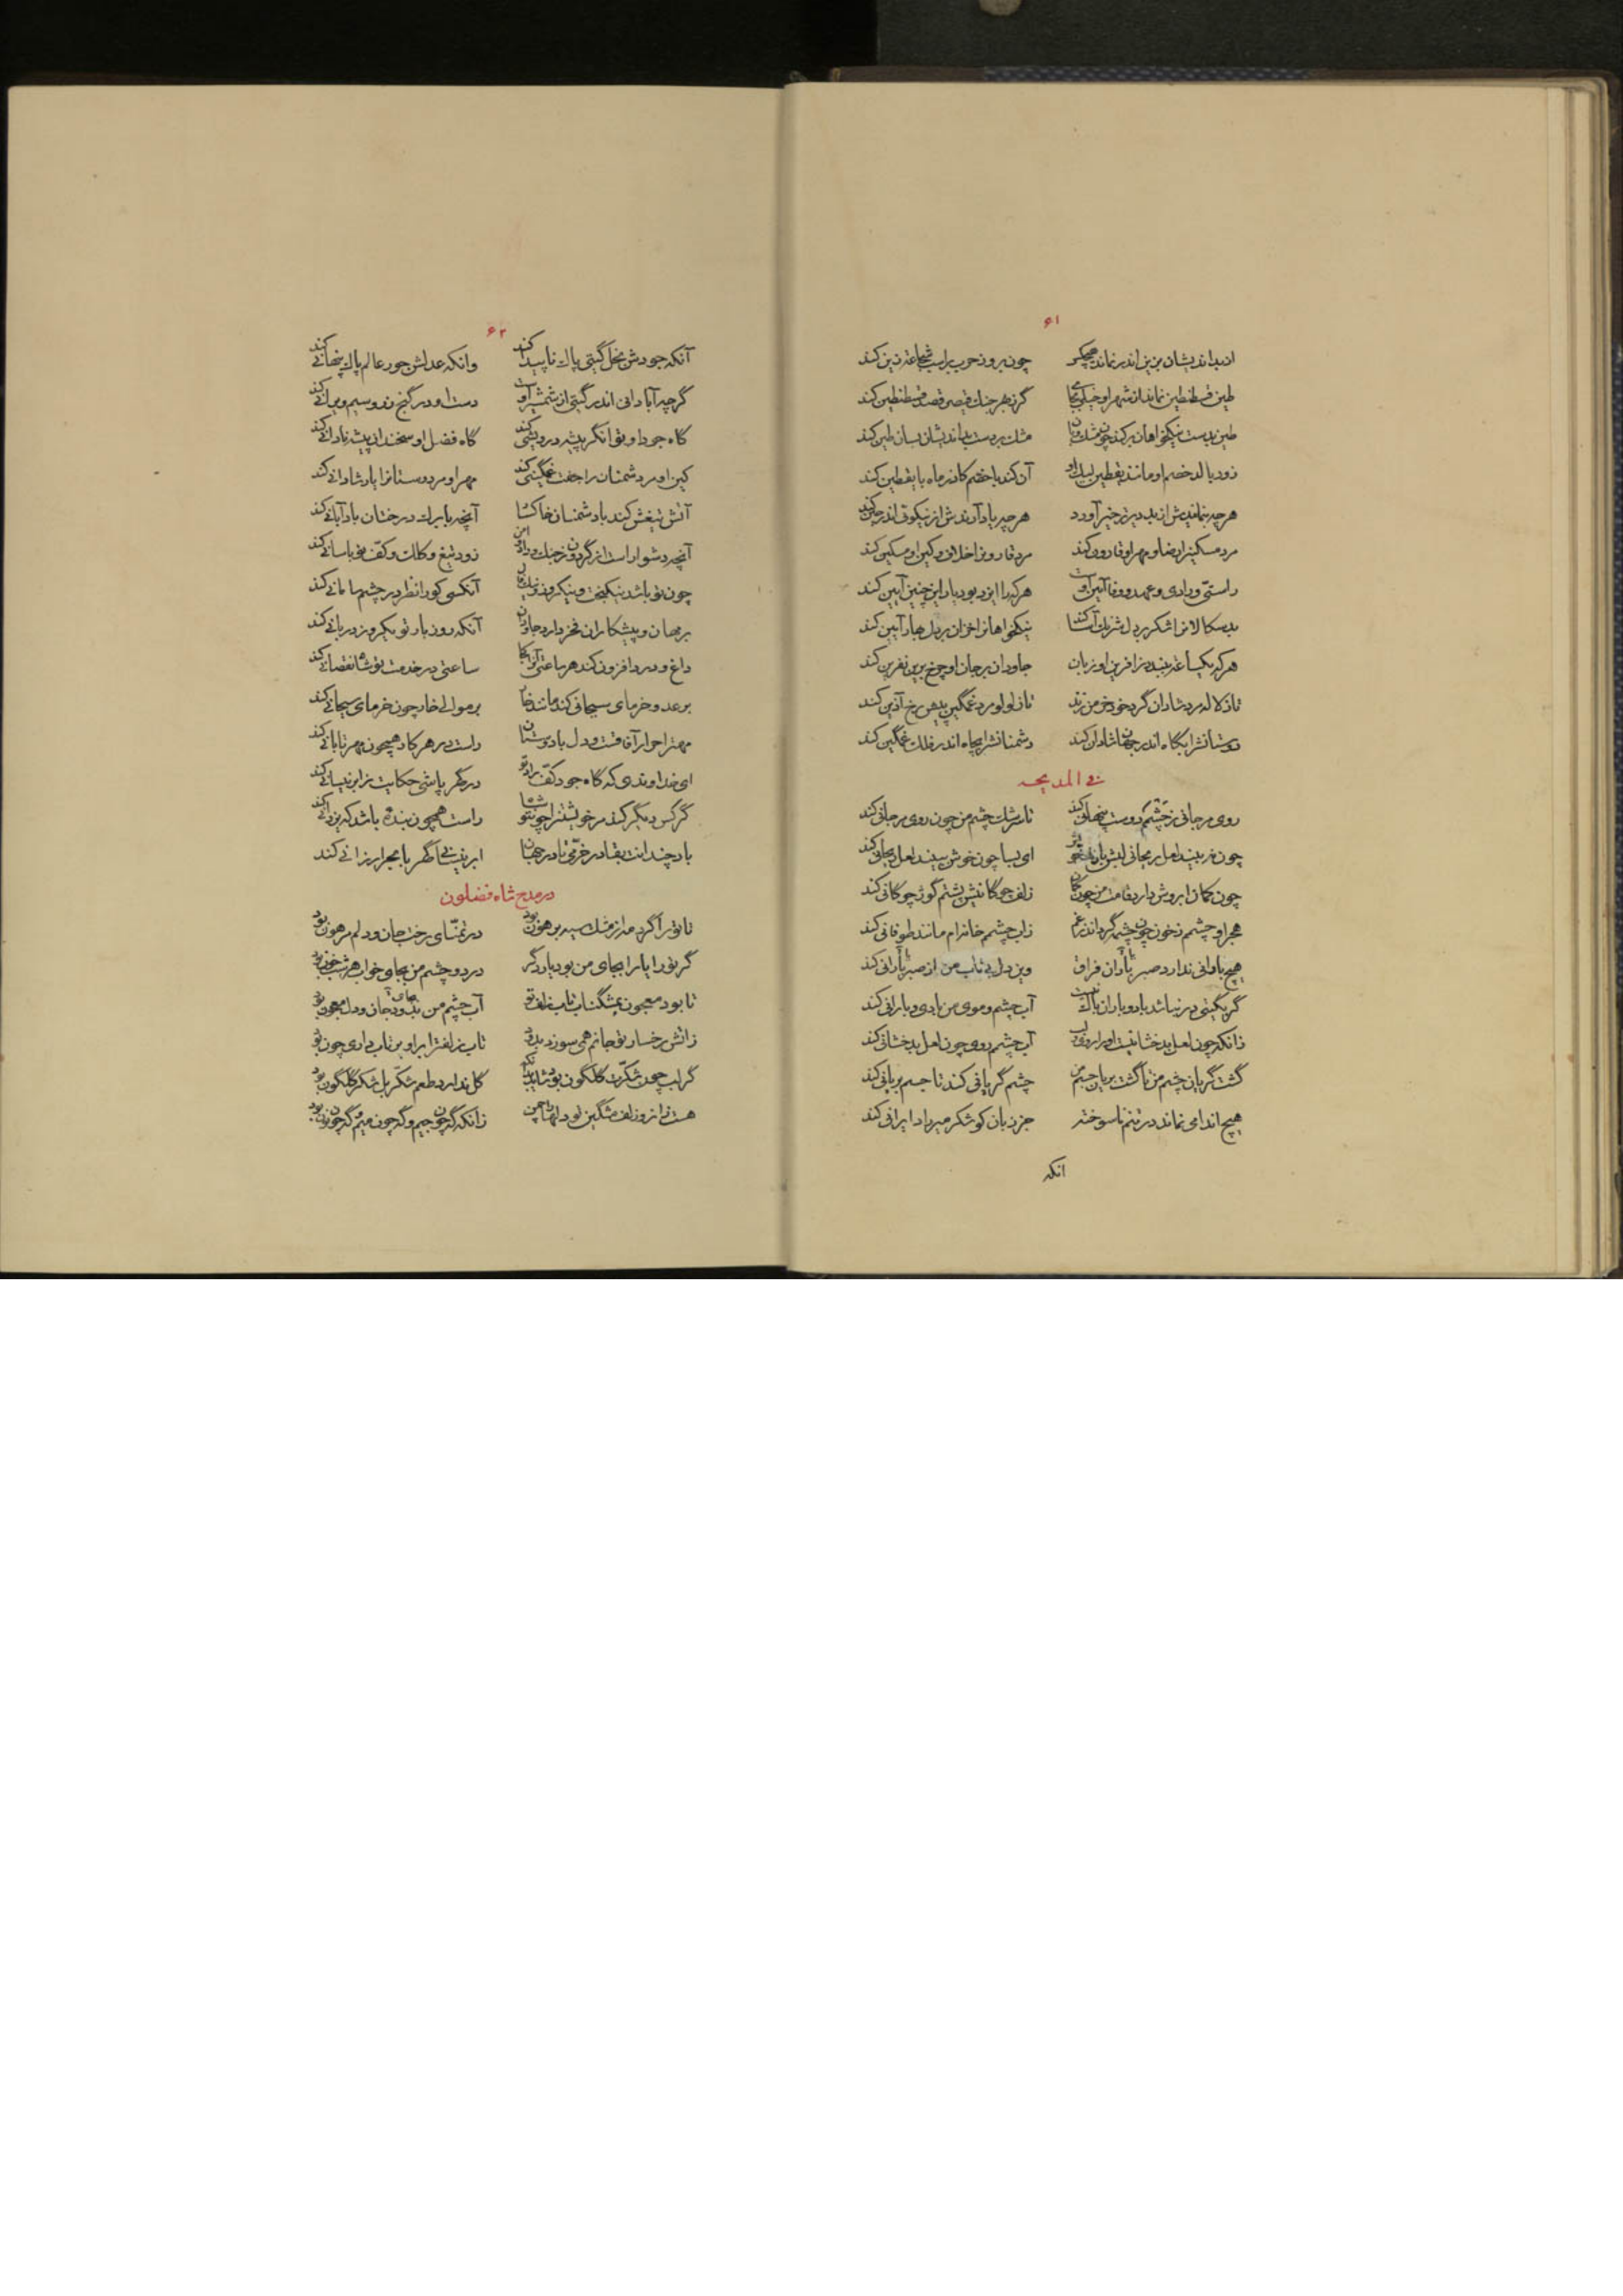 ۶۱
از بد اندیشان بزین اندر نماند هیچکس چون بروز حرب بر اسب شجاعت زین کند
طین قسطنطین نماند از شهر او جنگی بجا گر بهر جنك قیصر قصد قسطنطین کند
طین بدست نیکخواهان بر کند چون مشك ناب مشك بر دست بد اندیشان بسان طین کند
زود بالد خصم او مانند یقطین لیك او آن کند با خصم کان مه ماه با یقطین کند
هرچه بنمایندش از بد دیرتر خیر آورد هرچه یاد آرندش از نیکوئی اندر حین کند
مرد مسکین را رضا و مهر او قارون کند مرد قارون را خلاف و کین او مسکین کند
راستی و رادی و عهد و وفا آئین اوست هر که را ایزد بود یار این چنین آیین کند
بدسکالان را شکر در دل شرنك آسا کند نیکخواهان را خزان بر دل بهار آیین کند
هر که یکساعت ببندد ز آفرین او زبان جاودان بر جان او چرخ برین نفرین کند
تا ز لاله مرد شادان گرد خود خرمن زند تا ز لولو مرد غمگین پیش رخ آذین کند
دوستانش را بگاه اندر جهان شادان کند دشمنانش را بچاه اندر فلك غمگین کند
فی المدیحه
روی مرجانی ز چشمم دوست پنهانی کند تا سرشك چشم من چون روی مرجانی کند
چون مر بیند لعل ریحانی لبش یابد ای بسا چون خوش ببیند لعل ریحانی کند
چون کمان ابروش دارد قامت من چون کمان زلف چوگانیش پشتم گوژ چوگانی کند
هجر او چشمم ز خون چون چشمه گرداند ز غم زاب چشمم خانه ام مانند طوفانی کند
هیچ باوانی ندارد صبر با آن فراق وین دل بی تاب من از صبر کند
گر بگیتی در نباشد باد و باران باك نیست آب چشم و موی من بادی و بارانی کند
زانکه چون لعل بدخشانیست او را روی لب آب چشمم روی چون لعل بدخشانی کند
گشت گریان چشم من تا گشت بریان جسم من چشم گریانی کند تا جسم بریانی کند
هیچ اندامی نماند در تنم نا سوخته جز زبان کو شکر میر راد ایرانی کند
انکه
۶۲
آنکه جودش بخل گیتی پاك ناپیدا کند وانکه عدلش جور عالم پاك پنهانی کند
گرچه آبادانی اندر گیتی از شمشیر اوست دست او در گنج زر و سیم ویرانی کند
گاه جود او توانگر پیشه درویشی کند گاه فضل او سخندان پیشه نادانی کند
کین او مر دشمنان را جفت غمگینی کند مهر او مر دوستانرا یار شادانی کند
آتش تیغش کند با دشمنان خاکسار آنچه با برك درختان باد آبانی کند
آنچه دشوار است از گردون ز جنك زود تیغ و كلك و کف تو باسانی کند
چون تو باشد نیکبخت و نیکروز و آنکسی کو را نظر در چشم ما مانی کند
بر مهان و پیشکاران فخر دارد جاودان آنکه روز بار تو یکروز دربانی کند
داغ و درد افزون کند هر ساعتی آنرا کجا ساعتی در خدمت تو شاه نقصانی کند
بر عدو خرمای سیحانی کند مانند خار بر موالی خار چون خرمای سیحانی کند
مهترا حوار آفاقست و دل با دوستان راست در هر کار همچون مهر تابانی کند
ای خداوندی که گاه جود کف راد تو در گهر پاشی حکایت ز ابر نیسانی کند
گر کس دیگر کند مر خویشتن را چون تو شاه راست همچون بنده باشد که یزدانی کند
باد چندانت بقا در خرمی تا در جهان ابر نیسانی گهر با بحر ارزانی کند
در مدح شاه فضلون
تا ترا گرد مه از مشك سیه پرهون بود در تمنای رخت جان و دلم مرهون بود
گر تو را یارا بجای من بود یار دگر در دو چشم من بجای خواب هر شب خون بود
تا بود معجون بمشگناب تاب زلف تو آب چشم من بجای و جان و دل معجون بود
ز اتش رخسار تو جانم همی سوزد بدرد تاب زلفت را بر او بر تاب داری چون بود
گر لب چون شکرت گلگون بود شاید گل ندارد طعم شکر بل شکر گلگون بود
هست دائم زو زلف مشگین تو زانکه گه چون جیم و گه چون میم و گه چون نون بود